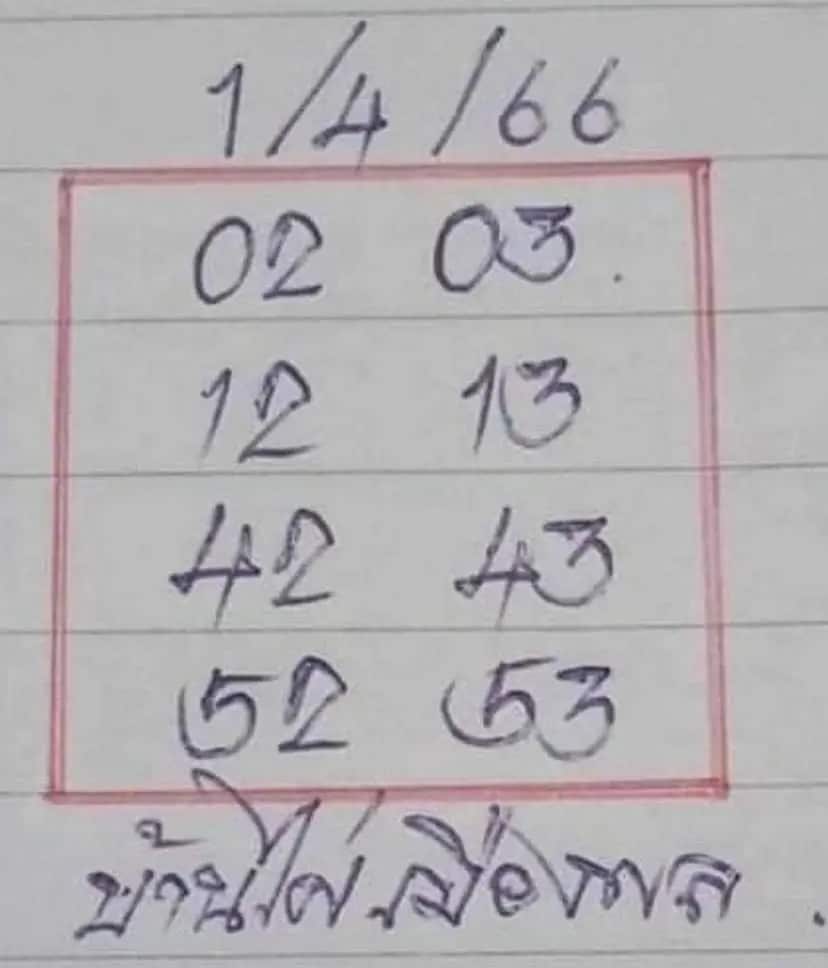 1/4/66
02 03.
12 13
42 43
52 53
บ้านไผ่ เมืองพล.